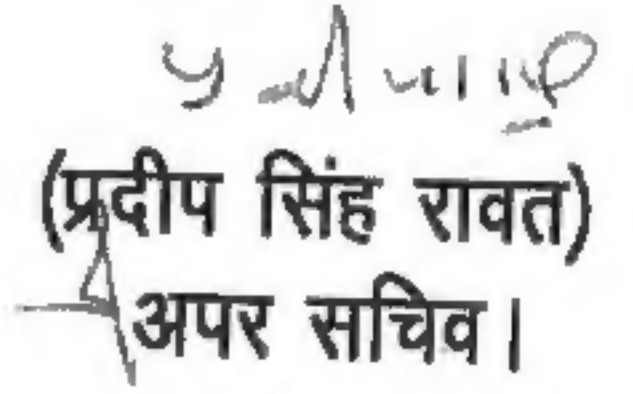 (प्रदीप सिंह रावत)
अपर सचिव।